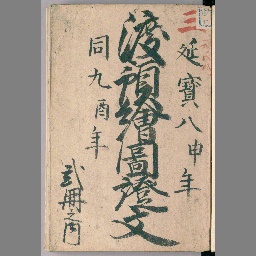 三
延寶八申年
渡預繪圖證文
同九酉年
弐冊之内